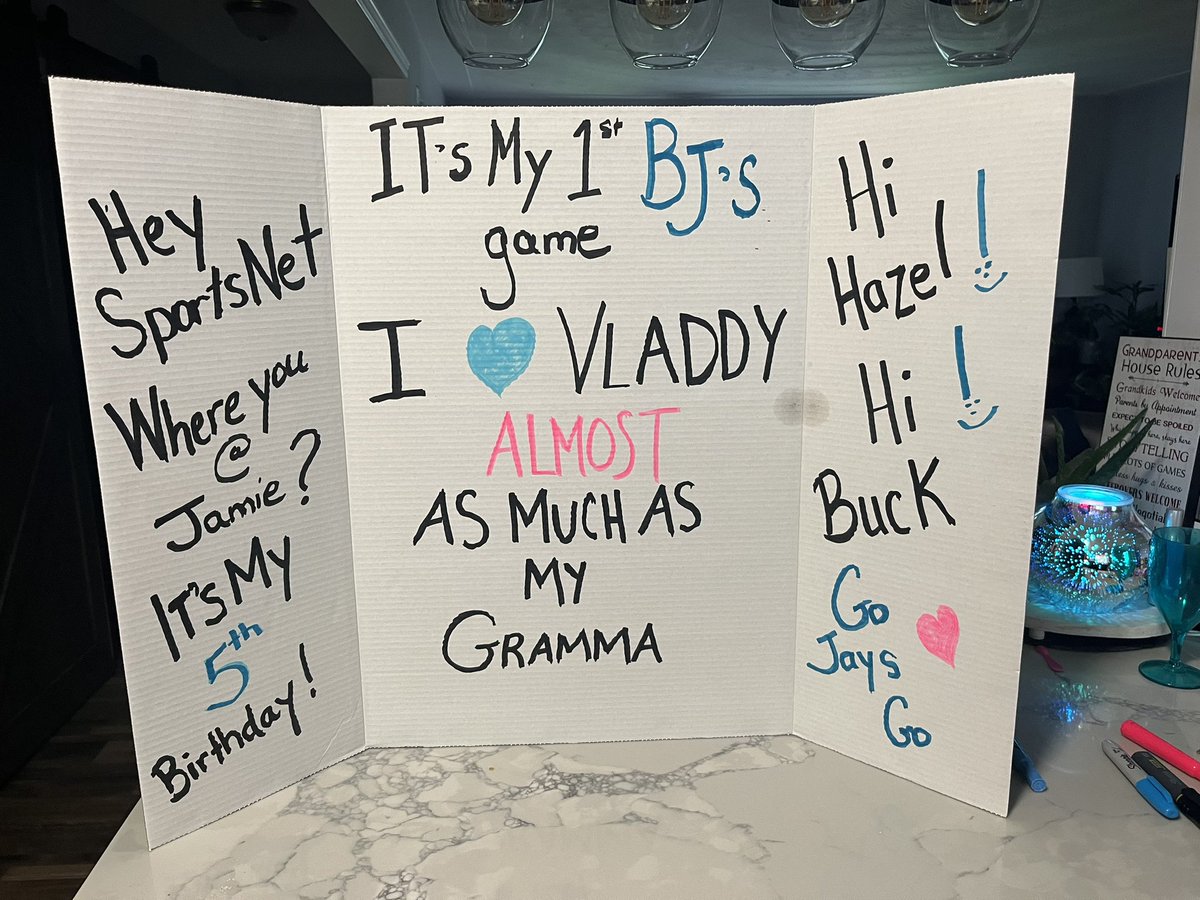 Hey
SportsNet
Where you
@
Jamie?
It's My
5th
Birthday!
IT's My 1st BJ's
game
I VLADDY
ALMOST
AS MUCH AS
MY
GRAMMA
Hi
Hazel!
Hi!
Buck
Go
Jays
Go
GRANDPARENT
House Rules
Grandkids Welcome
Parents by Appointment
TELLING
LOTS OF GAMES
hugs & kisses
WELCOME